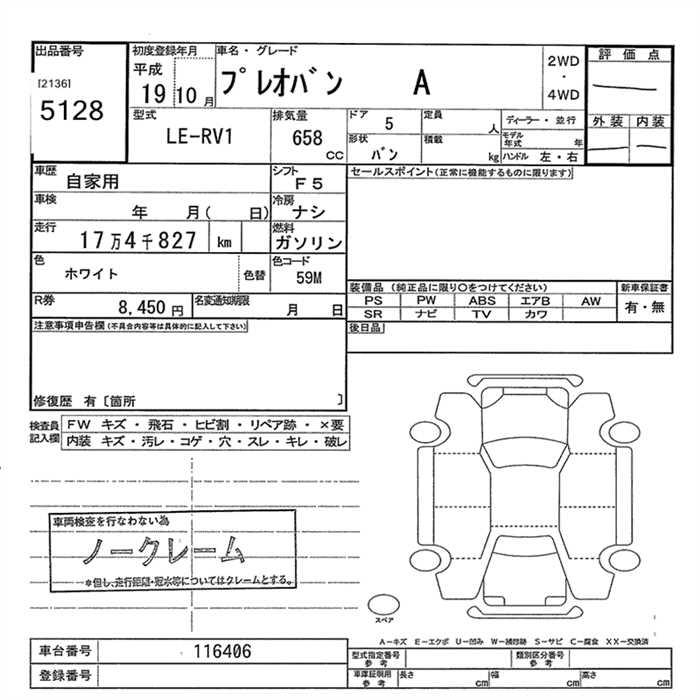 出品番号
[2136]
5128
初度登録年月
平成
19 10 月
車名・グレード
プレオバン A
2WD
・
4WD
評価点
外装 内装
型式
LE-RV1
排気量
658
CC
ドア 5
定員
人
ディーラー・並行
形状
バン
積載
kg
モデル年式 年
ハンドル 左・右
車歴
自家用
シフト
F5
セールスポイント(正常に機能するものに限ります)
車検
年 月( 日)
冷房
ナシ
走行
17万4千827 km
燃料
ガソリン
色
ホワイト
色替
色コード
59M
装備品 (純正品に限り○をつけてください)
新車保証書
PS PW ABS エアB AW
SR ナビ TV カワ
有・無
R券
8,450 円
名変通知期限
月 日
後日品
注意事項申告欄(不具合内容等は具体的に記入して下さい)
修復歴 有〔箇所 〕
検査員記入欄
FW キズ・飛石・ヒビ割・リペア跡・×要
内装 キズ・汚レ・コゲ・穴・スレ・キレ・破レ
車両検査を行なわない為
ノークレーム
*但し、走行距離・冠水等についてはクレームとする。
スペア
A-キズ E-エクボ U-凹み W-補修跡 S-サビ C-腐食 XX-交換済
車台番号
116406
登録番号
型式指定番号
参考
類別区分番号
参考
車庫証明用
参考
長さ cm
幅 cm
高さ cm